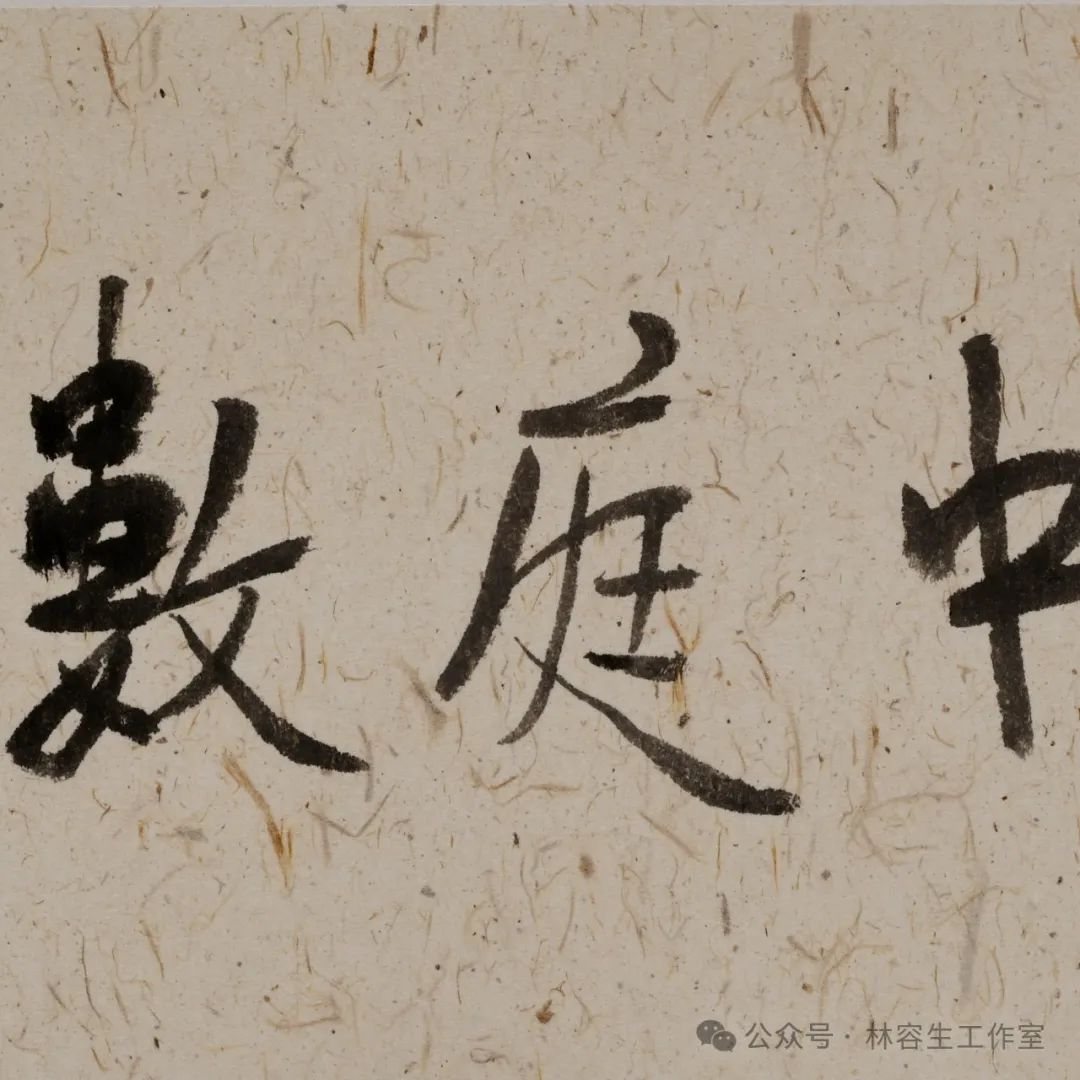 中庭數
公众号 · 林容生工作室